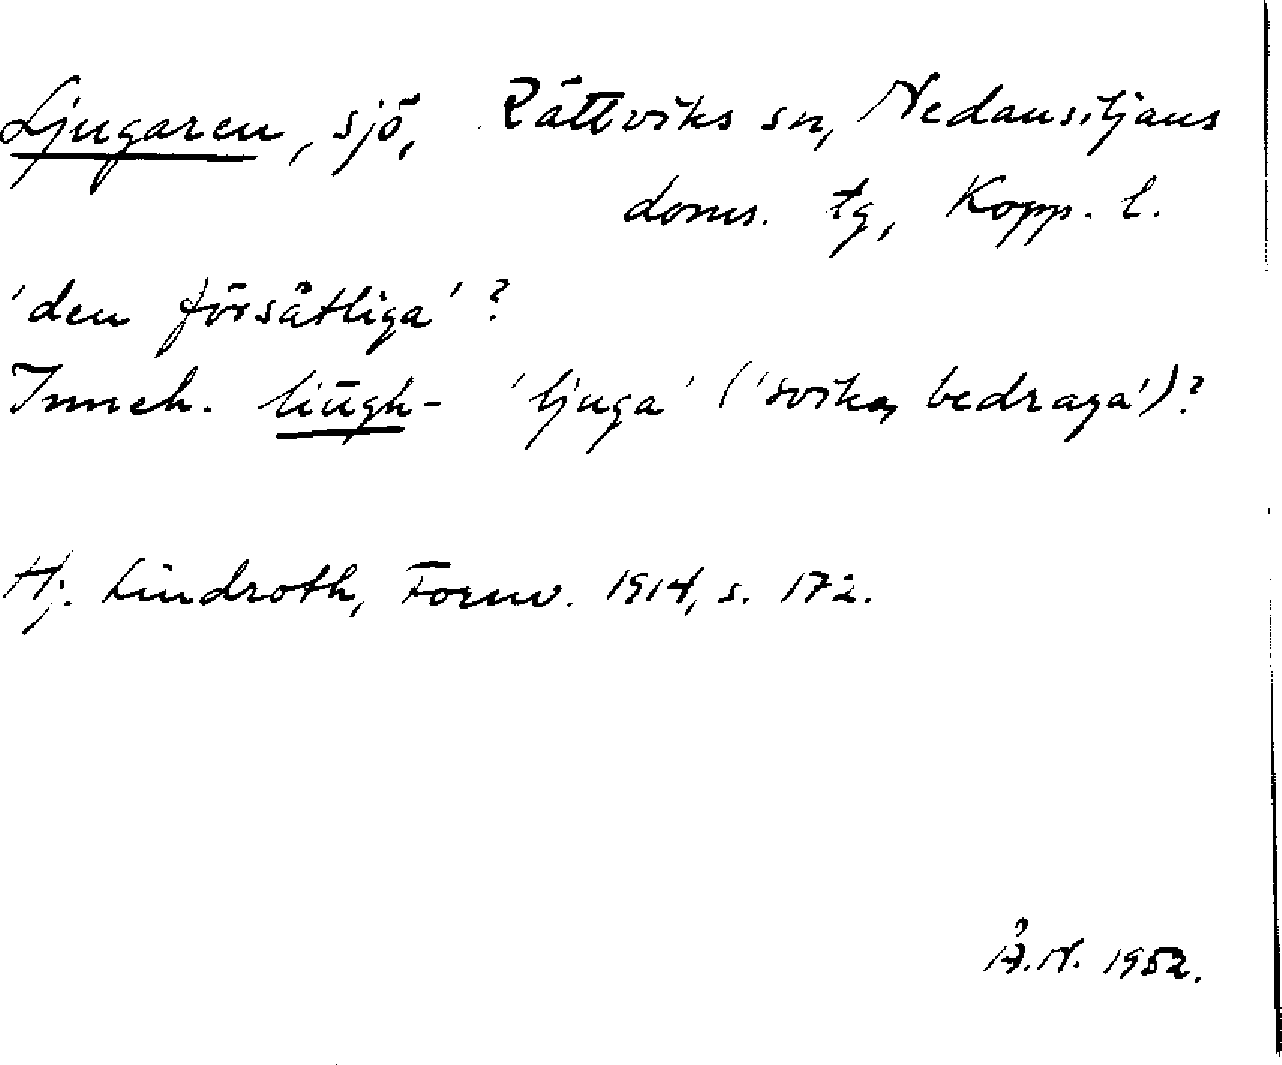 Ljugaren, sjö, Rättviks sn, Nedansiljans
doms. tg, Kopp. l.
'den försåtliga'?
Inneh. liūgh- 'ljuga' ('svika, bedraga')?
Hj. Lindroth, Fornv. 1914, s. 172.
Å.N. 1952.